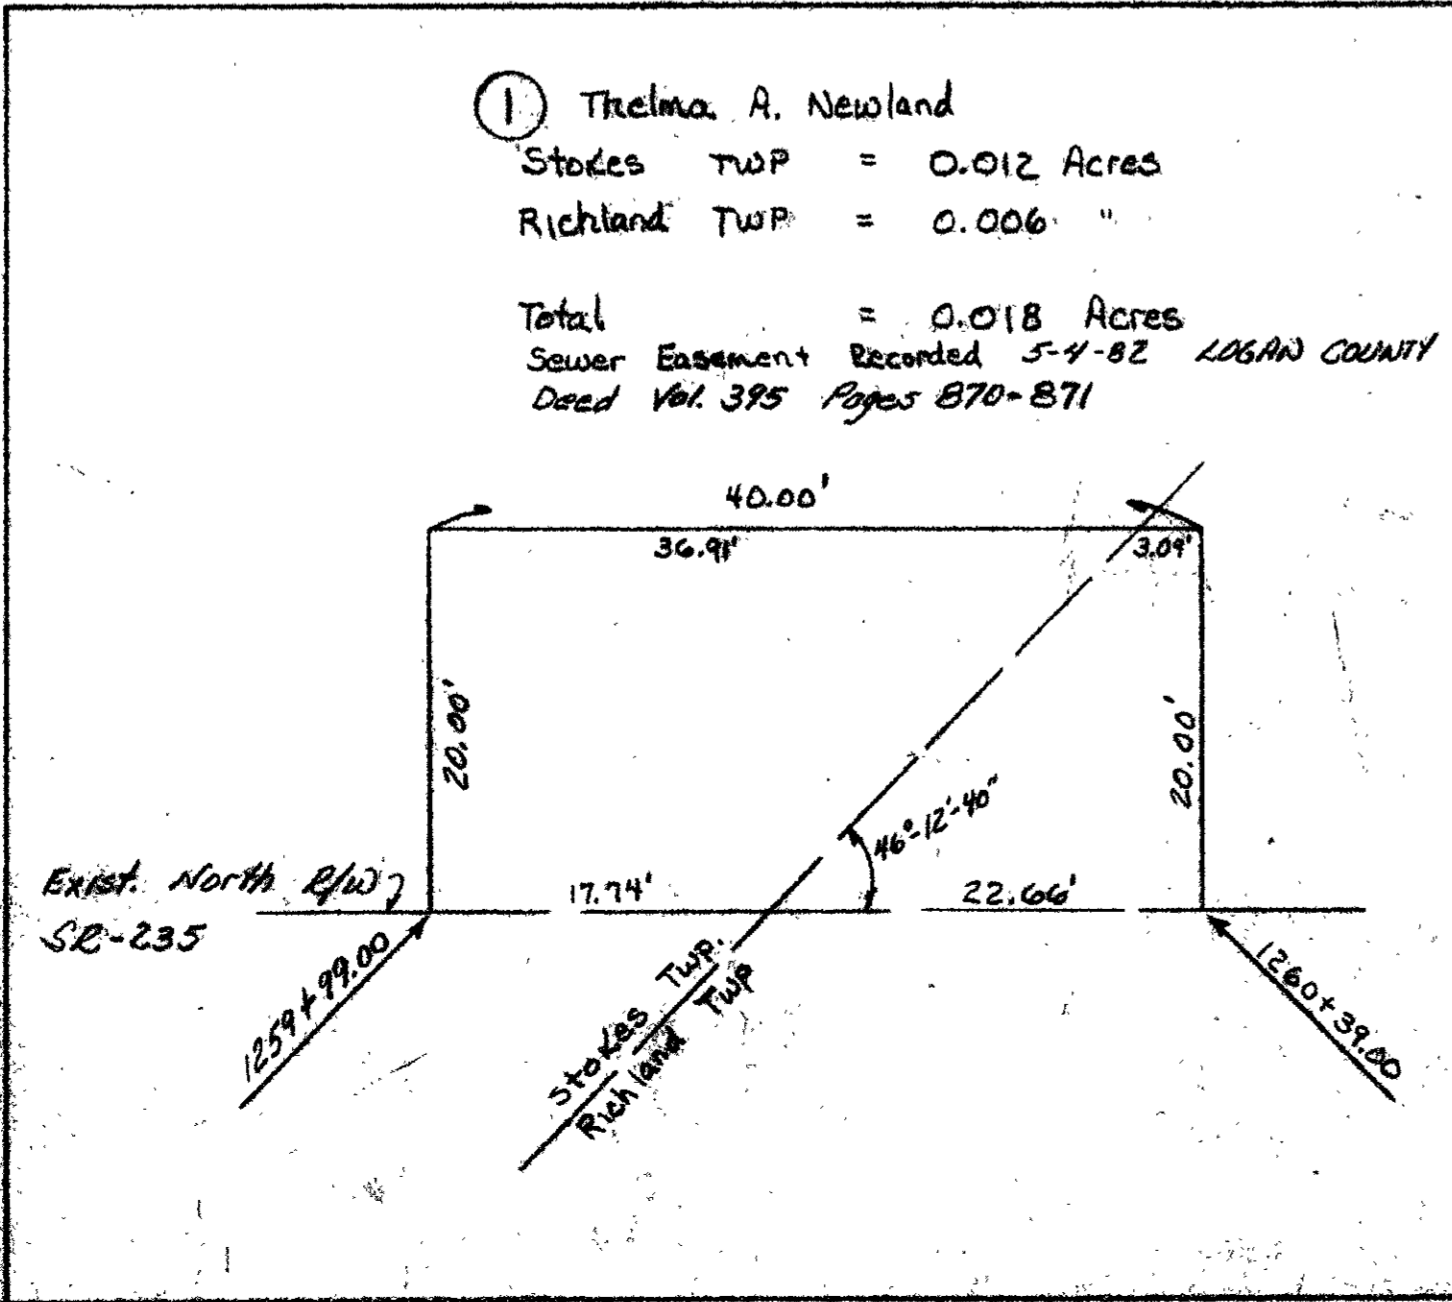 1 Thelma A. Newland
Stokes TWP = 0.012 Acres
Richland TWP = 0.006 "
Total = 0.018 Acres
Sewer Easement Recorded 5-4-82 LOGAN COUNTY
Deed Vol. 395 Pages 870-871
40.00'
36.91'
3.09'
20.00'
20.00'
46°-12'-40"
Exist. North R/W
SR-235
17.74'
22.66'
1259+99.00
1260+39.00
Stokes Twp.
Richland Twp